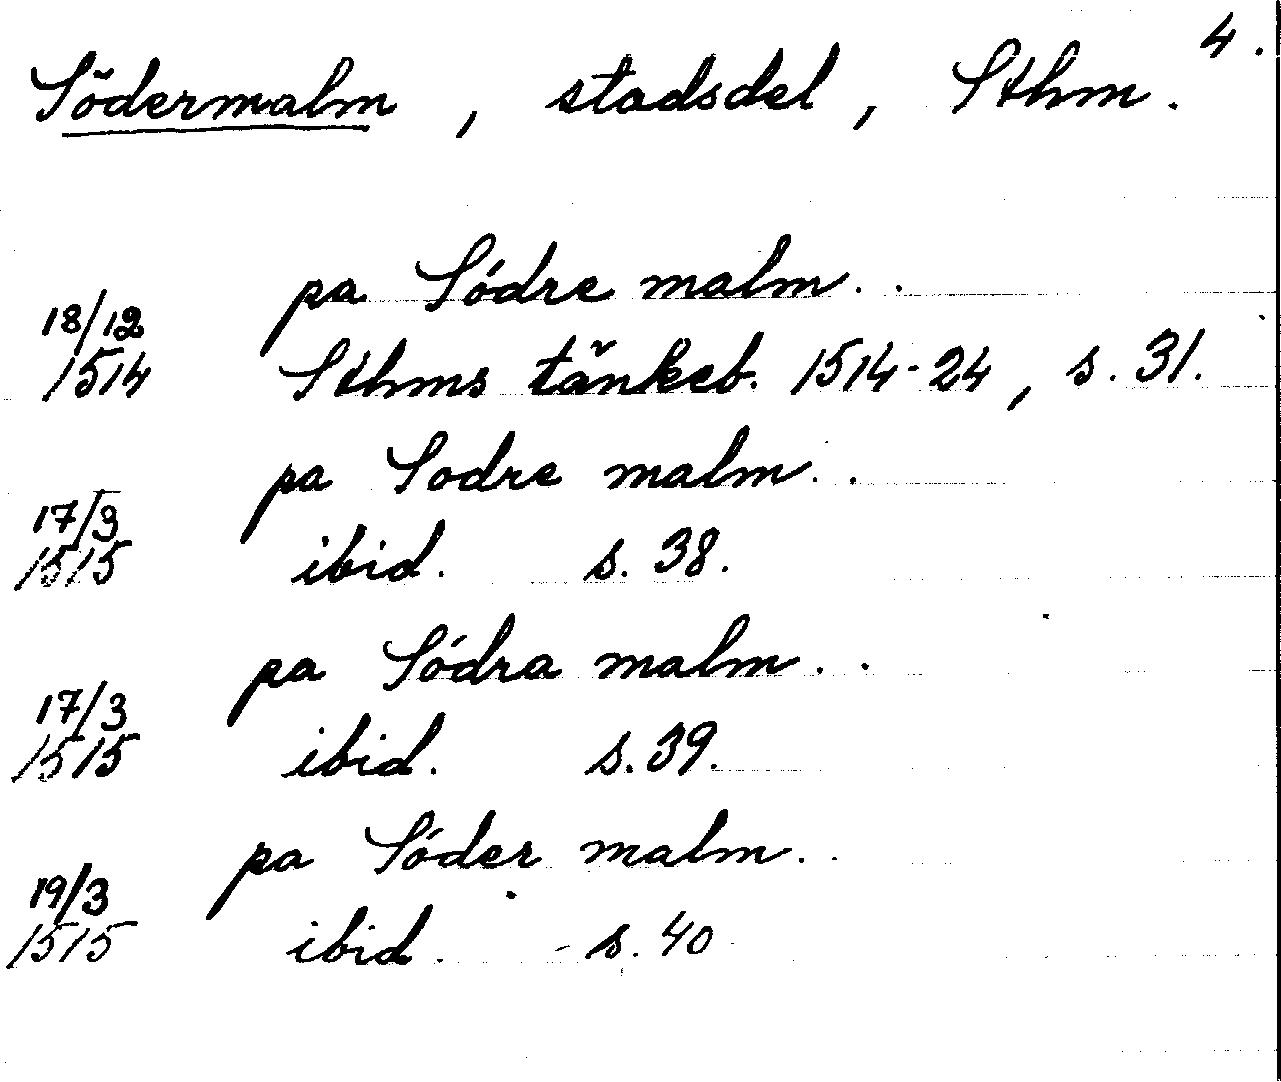 4.
Södermalm, stadsdel, Sthm.
pa Södre malm..
18/12
1514 Sthms tänkeb. 1514-24, s. 31.
pa Sodre malm..
17/3
1515 ibid. s. 38.
pa Södra malm..
17/3
1515 ibid. s. 39.
pa Söder malm..
19/3
1515 ibid. s. 40